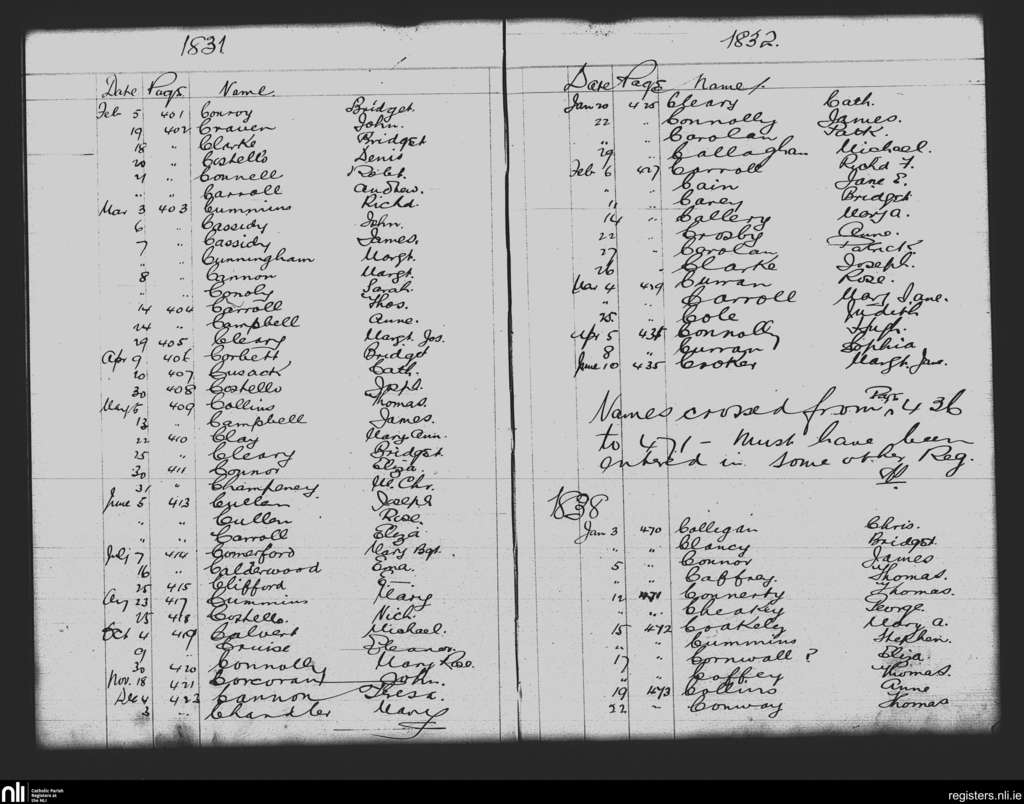 1831
Date Page Name
Feb 5 401 Conroy Bridget
19 402 Craven John.
18 " Clarke Bridget
20 " Costello Denis
21 " Connell
" " Carroll Andrew.
Mar 3 403 Cummins Richd
6 " Cassidy John.
7 " Cassidy James.
" " Cunningham Margt.
8 " Cannon Margt.
" " Conoly Sarah.
14 404 Carroll Thos.
24 " Campbell Anne.
29 405 Cleary Margt. Jos.
Apr 9 406 Corbett Bridget
20 407 Cusack Cath.
30 408 Costello Joseph.
May 6 409 Collins Thomas.
13 " Campbell James.
22 410 Clay Mary Ann.
25 " Cleary Bridget
30 411 Connor Eliza.
31 " Champeney
June 5 413 Cullen Joseph
" " Cullen Rose.
" " Carroll Eliza
July 7 414 Comerford Mary Bgt.
16 " Calderwood
25 415 Clifford —
Aug 23 417 Cummins Mary
25 418 Costello. Nich.
Oct 4 419 Calvert Michael.
9 " Cruise Eleanor
30 420 Connolly Mary Rose.
Nov. 18 421 Corcoran John.
Dec 4 423 Cannon Thresa.
3 " Chandler Mary
1832.
Date Page Name
Jan 20 425 Cleary Cath.
22 " Connolly James.
" " Carolan Patk.
29 " Callaghan Michael.
Feb 6 427 Carroll Richd F.
" " Cain Jane E.
11 " Carey Bridget
14 " Callery Mary a.
22 " Crosby Anne.
27 " Carolan Patrick
26 " Clarke Joseph.
Mar 4 429 Curran Rose.
" " Carroll Mary Jane.
25 " Cole Judith
Apr 5 431 Connolly Hugh.
8 " Curran Sophia
June 10 435 Croker Margt. Jane.
Names crossed from Page 436
to 471 - Must have been
entered in some other Reg.
1838
Jan 3 470 Colligan Chris.
" " Clancy Bridget
5 " Connor James
" " Caffrey Thomas.
12 471 Connerty Thomas.
" " Cheakey George.
15 472 Coakely Mary a.
" " Cummins Stephen.
17 " Cornwall ? Eliza
" " Coffey Thomas.
19 473 Collins Anne
22 " Conway Thomas
nli
Catholic Parish
Registers at
the NLI
registers.nli.ie